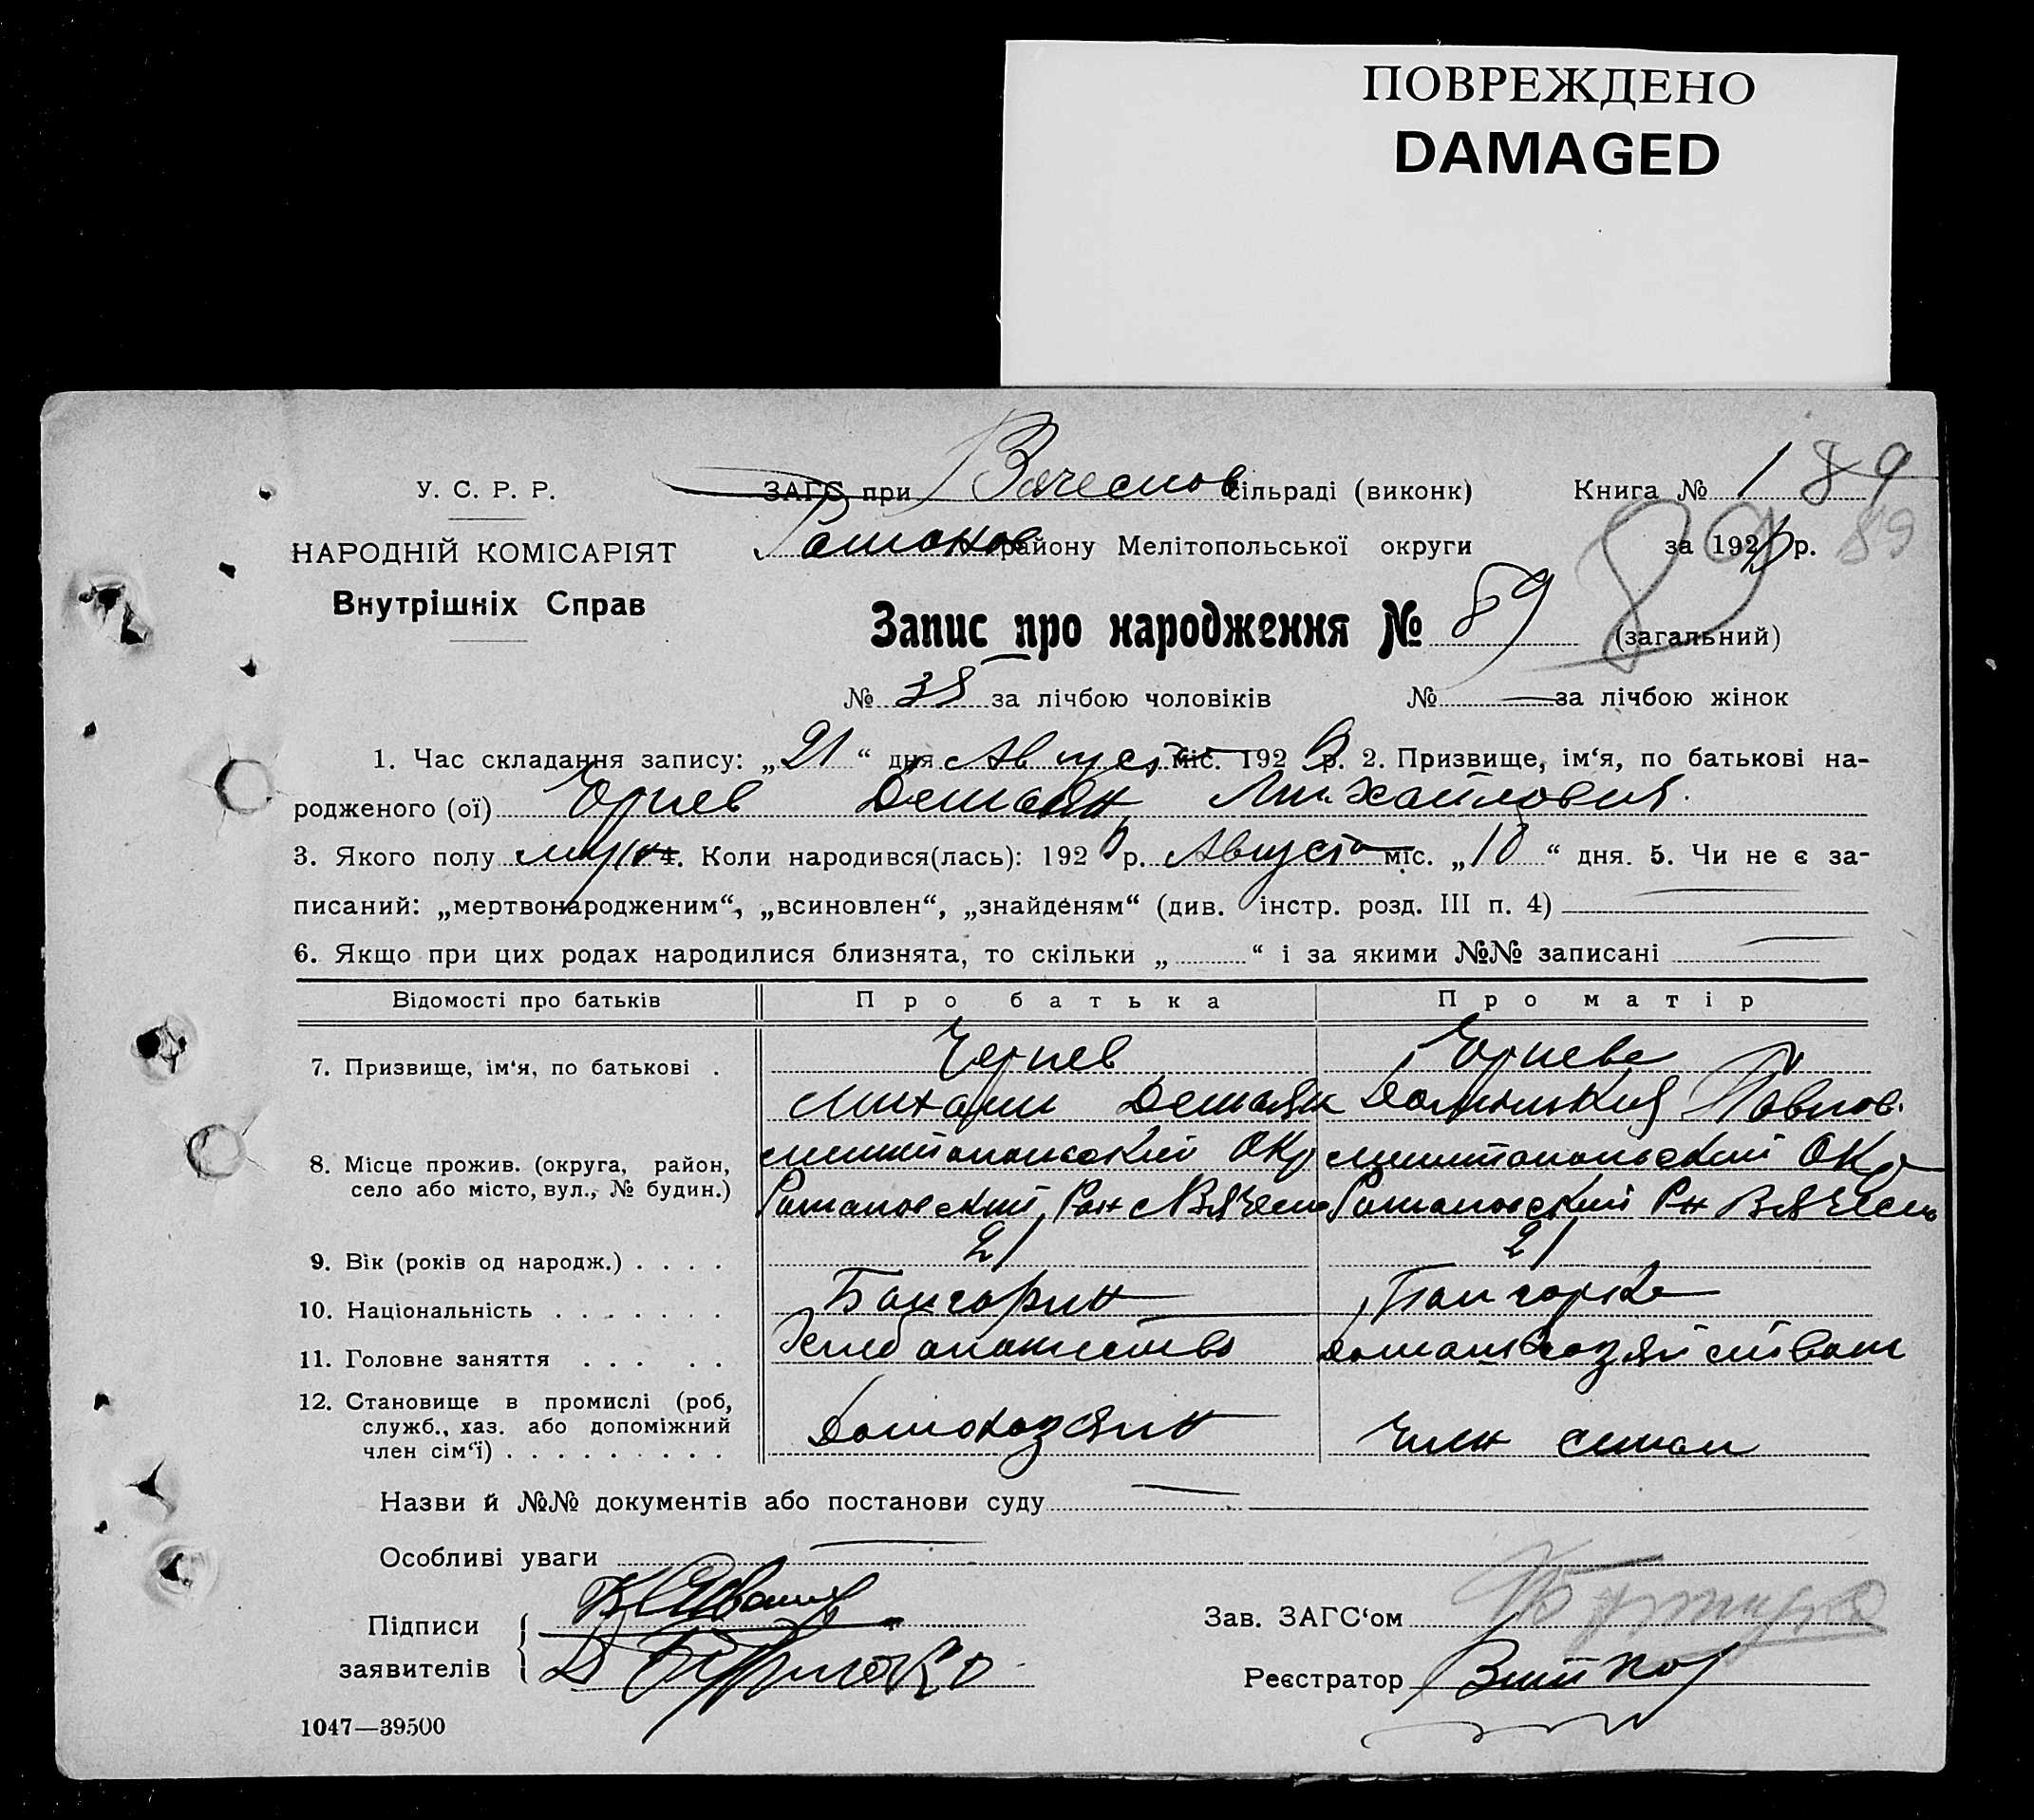 ПОВРЕЖДЕНО
DAMAGED
У. С. Р. Р.
НАРОДНІЙ КОМІСАРІЯТ
Внутрішніх Справ
ЗАГС при Вячеслов сільраді (виконк) Книга № 1 89
Романов району Мелітопольської округи за 192 р. 89
89
Запис про народження № 89 (загальний)
№ 38 за лічбою чоловіків № — за лічбою жінок
1. Час складання запису: „21“ дня Август міс. 192 р. 2. Призвище, ім‘я, по батькові на-
родженого (ої) Демьян Михайлович
3. Якого полу муж 4. Коли народився(лась): 192 р. Августа міс. „10“ дня. 5. Чи не є за-
писаний: „мертвонародженим“, „всиновлен“, „знайденям“ (див. інстр. розд. III п. 4) —
6. Якщо при цих родах народилися близнята, то скільки „ “ і за якими №№ записані —
Відомості про батьків Про батька Про матір
7. Призвище, ім‘я, по батькові .
Михаил Демьян
8. Місце прожив. (округа, район, село або місто, вул., № будин.) Мелитопольский Окр Мелитопольский Окр
Романовский Романовский Рн
9. Вік (років од народж.) . . . . 21 21
10. Національність . . . . . . . Болгарин Болгарка
11. Головне заняття . . . . . Хлебопашество
12. Становище в промислі (роб,
служб., хаз. або допоміжний
член сім‘ї) . . . . . . . . . Домохозяин Член семьи
Назви й №№ документів або постанови суду —
Особливі уваги —
Підписи
заявителів
Зав. ЗАГС‘ом
Реєстратор
1047—39500